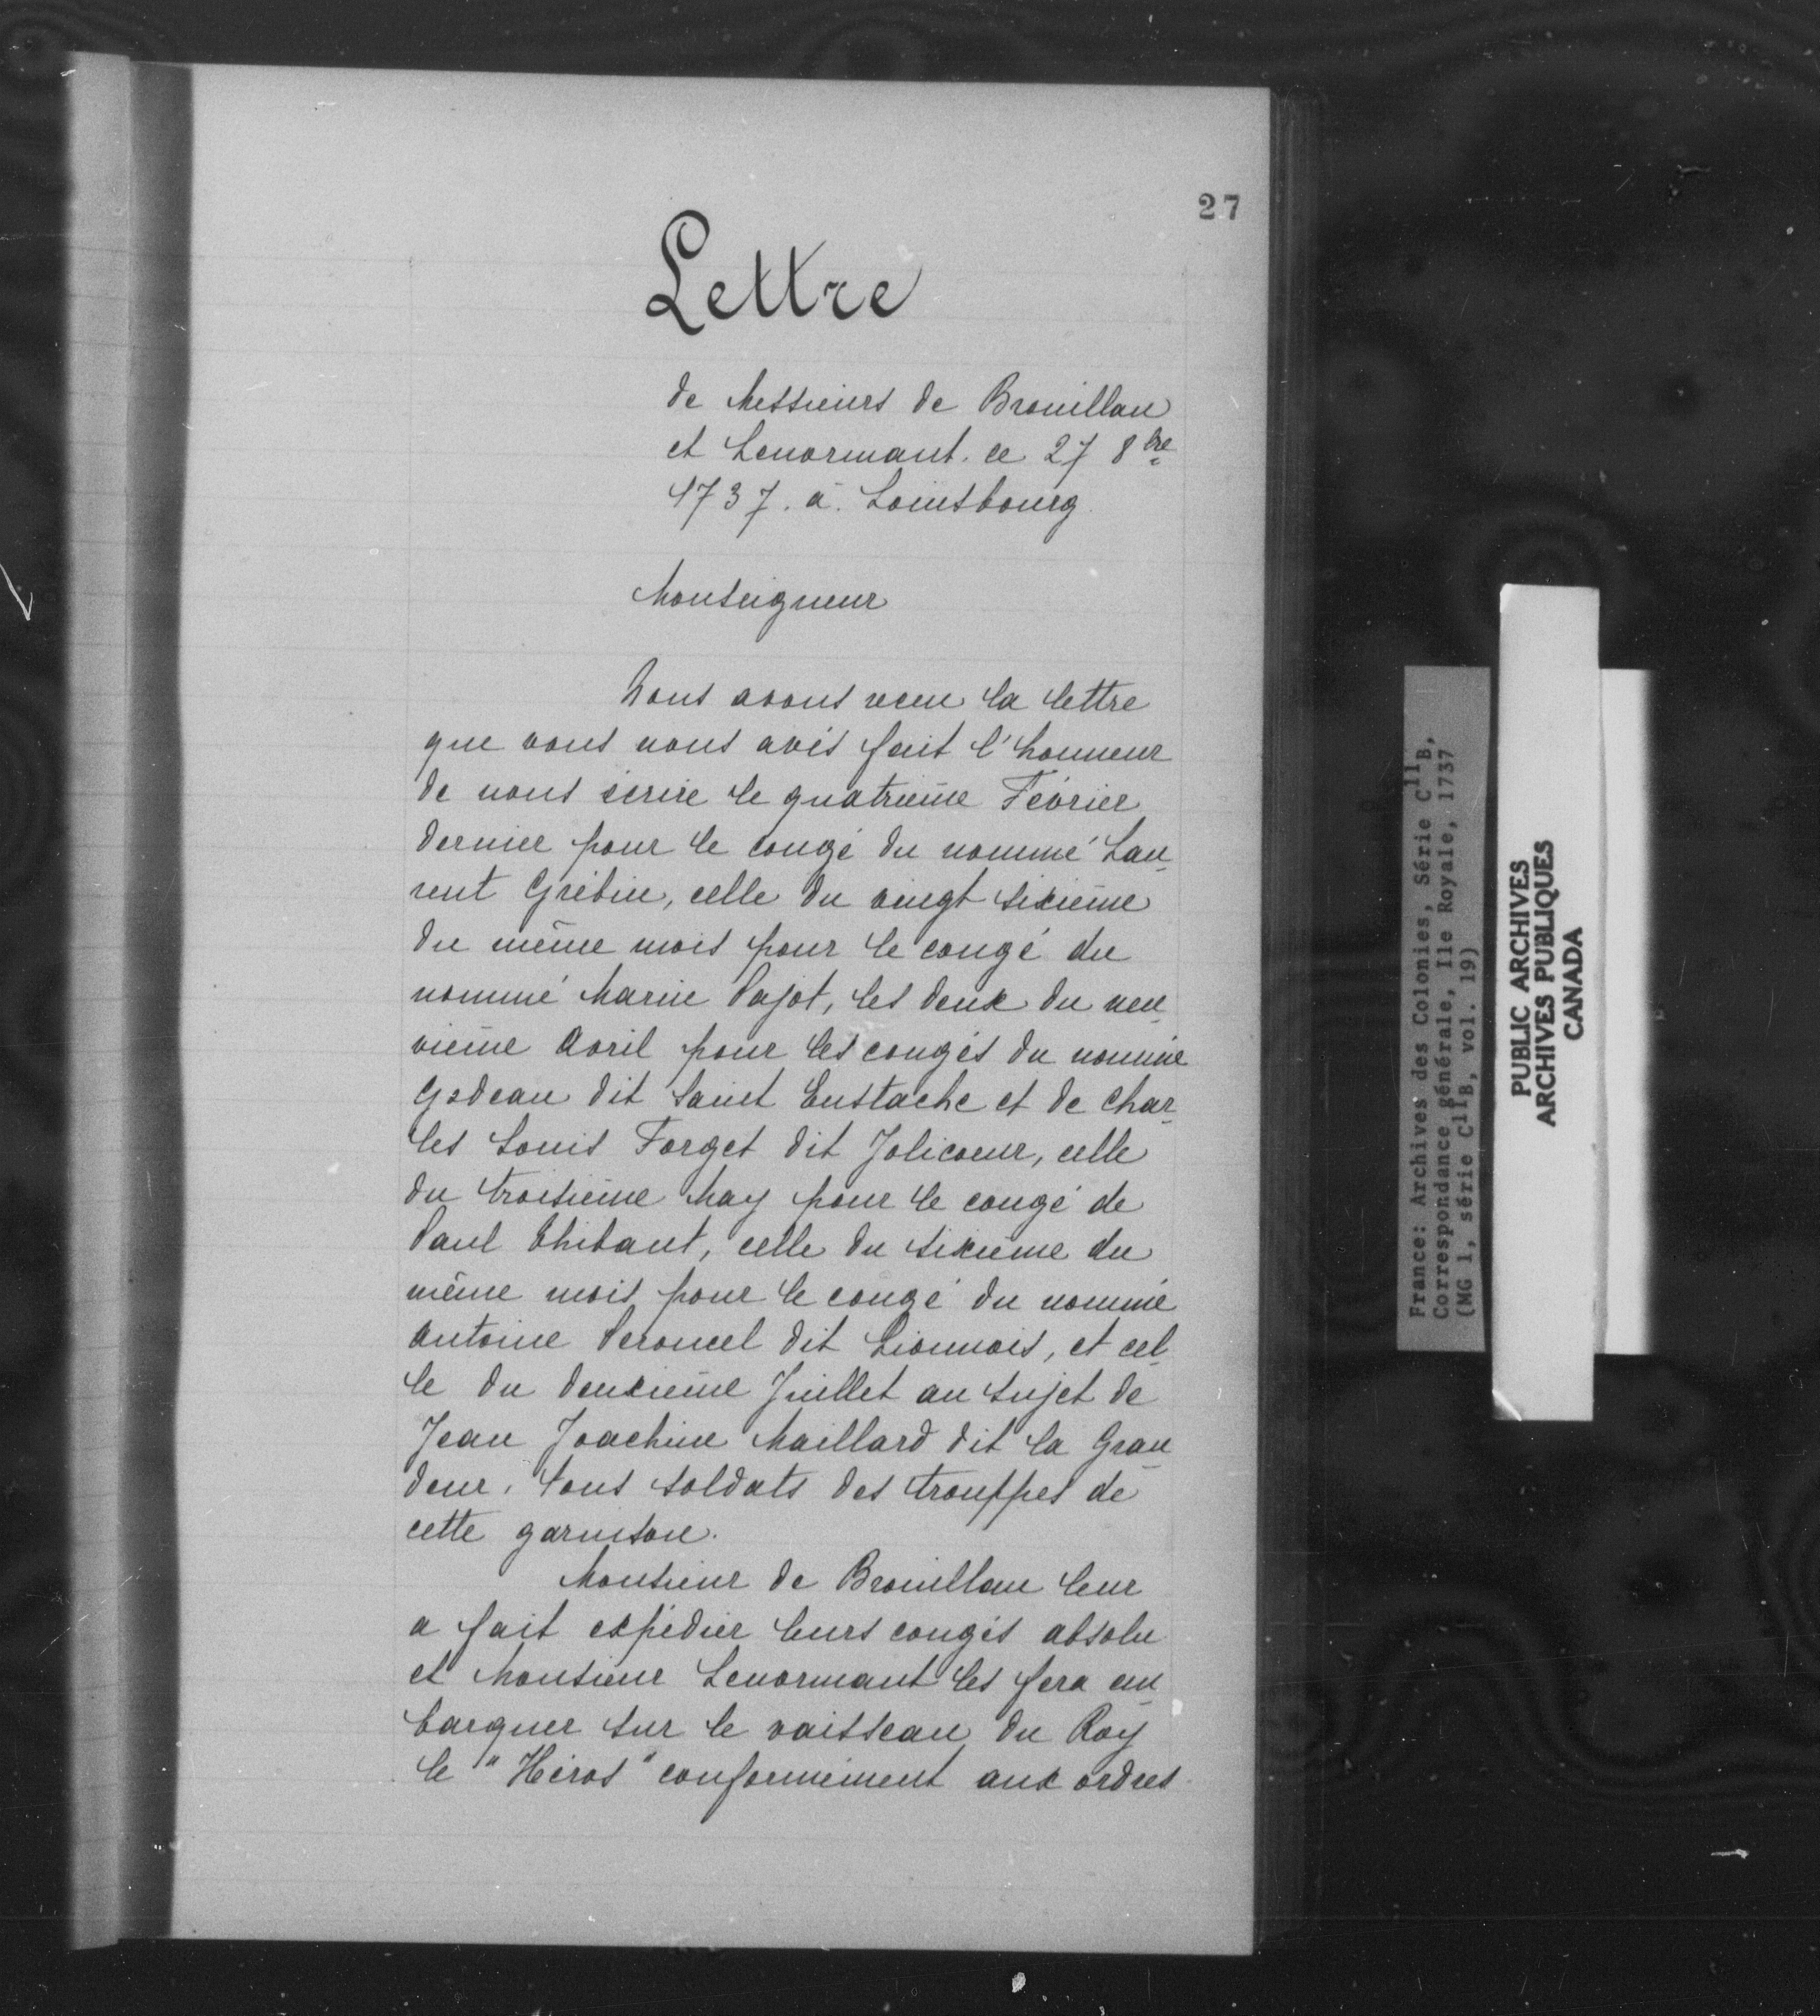 27
Lettre
de Messieurs de Brouillan
et Lenormant. ce 27 8bre
1737. à. Louisbourg
Monseigneur
Nous avons receu la lettre
que vous nous avés fait l'honneur
de nous écrire le quatrième Février
dernier pour le congé du nommé Lau-
rent Grébin, celle du vingt sixième
du même mois pour le congé du
nommé Marin Pajot, les deux du neu-
vième Avril pour les congés du nommé
Godeau dit Saint Eustache et de Char-
les Louis Forget dit Jolicoeur, celle
du troisième May pour le congé de
Paul Thibaut, celle du sixième du
même mois pour le congé du nommé
Antoine Peroncel dit Lionnois, et cel-
le du deuxième Juillet au sujet de
Jean Joachim Maillard dit la Gran-
deur. tous soldats des trouppes de
cette garnison.
Monsieur de Brouillan leur
a fait expédier leurs congés absolu
et Monsieur Lenormant les fera em-
barquer sur le vaisseau du Roy
le "Héros" conformément aux ordres
France: Archives des Colonies, Série C11B,
Correspondance générale, Ile Royale, 1737
(MG 1, série C11B, vol. 19)
PUBLIC ARCHIVES
ARCHIVES PUBLIQUES
CANADA